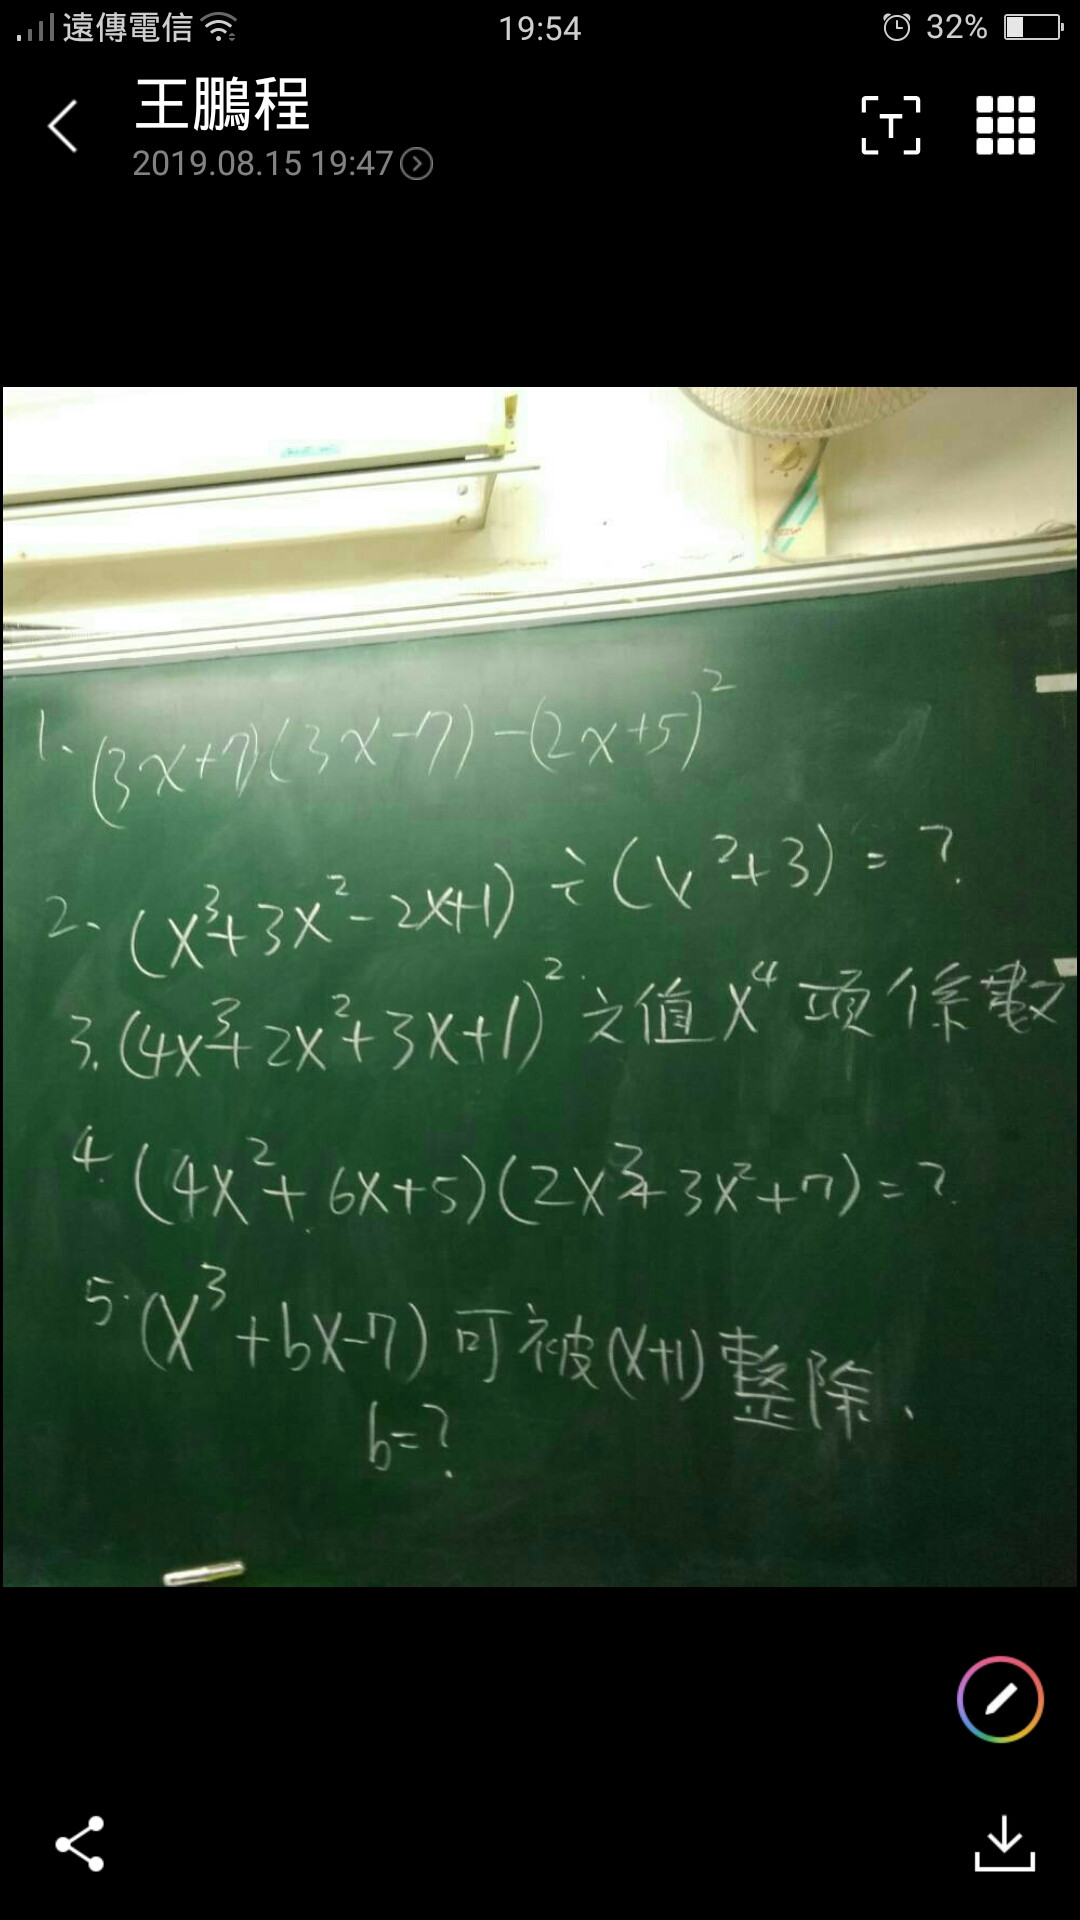 遠傳電信
19:54
32%
王鵬程
2019.08.15 19:47
T
1. (3x+7)(3x-7)-(2x+5)²
2. (x³+3x²-2x+1)÷(x²+3)=?
3. (4x³+2x²+3x+1)² 之值x⁴項係數
4. (4x²+6x+5)(2x³+3x²+7)=?
5. (x³+bx-7)可被(x+1)整除、
b=?